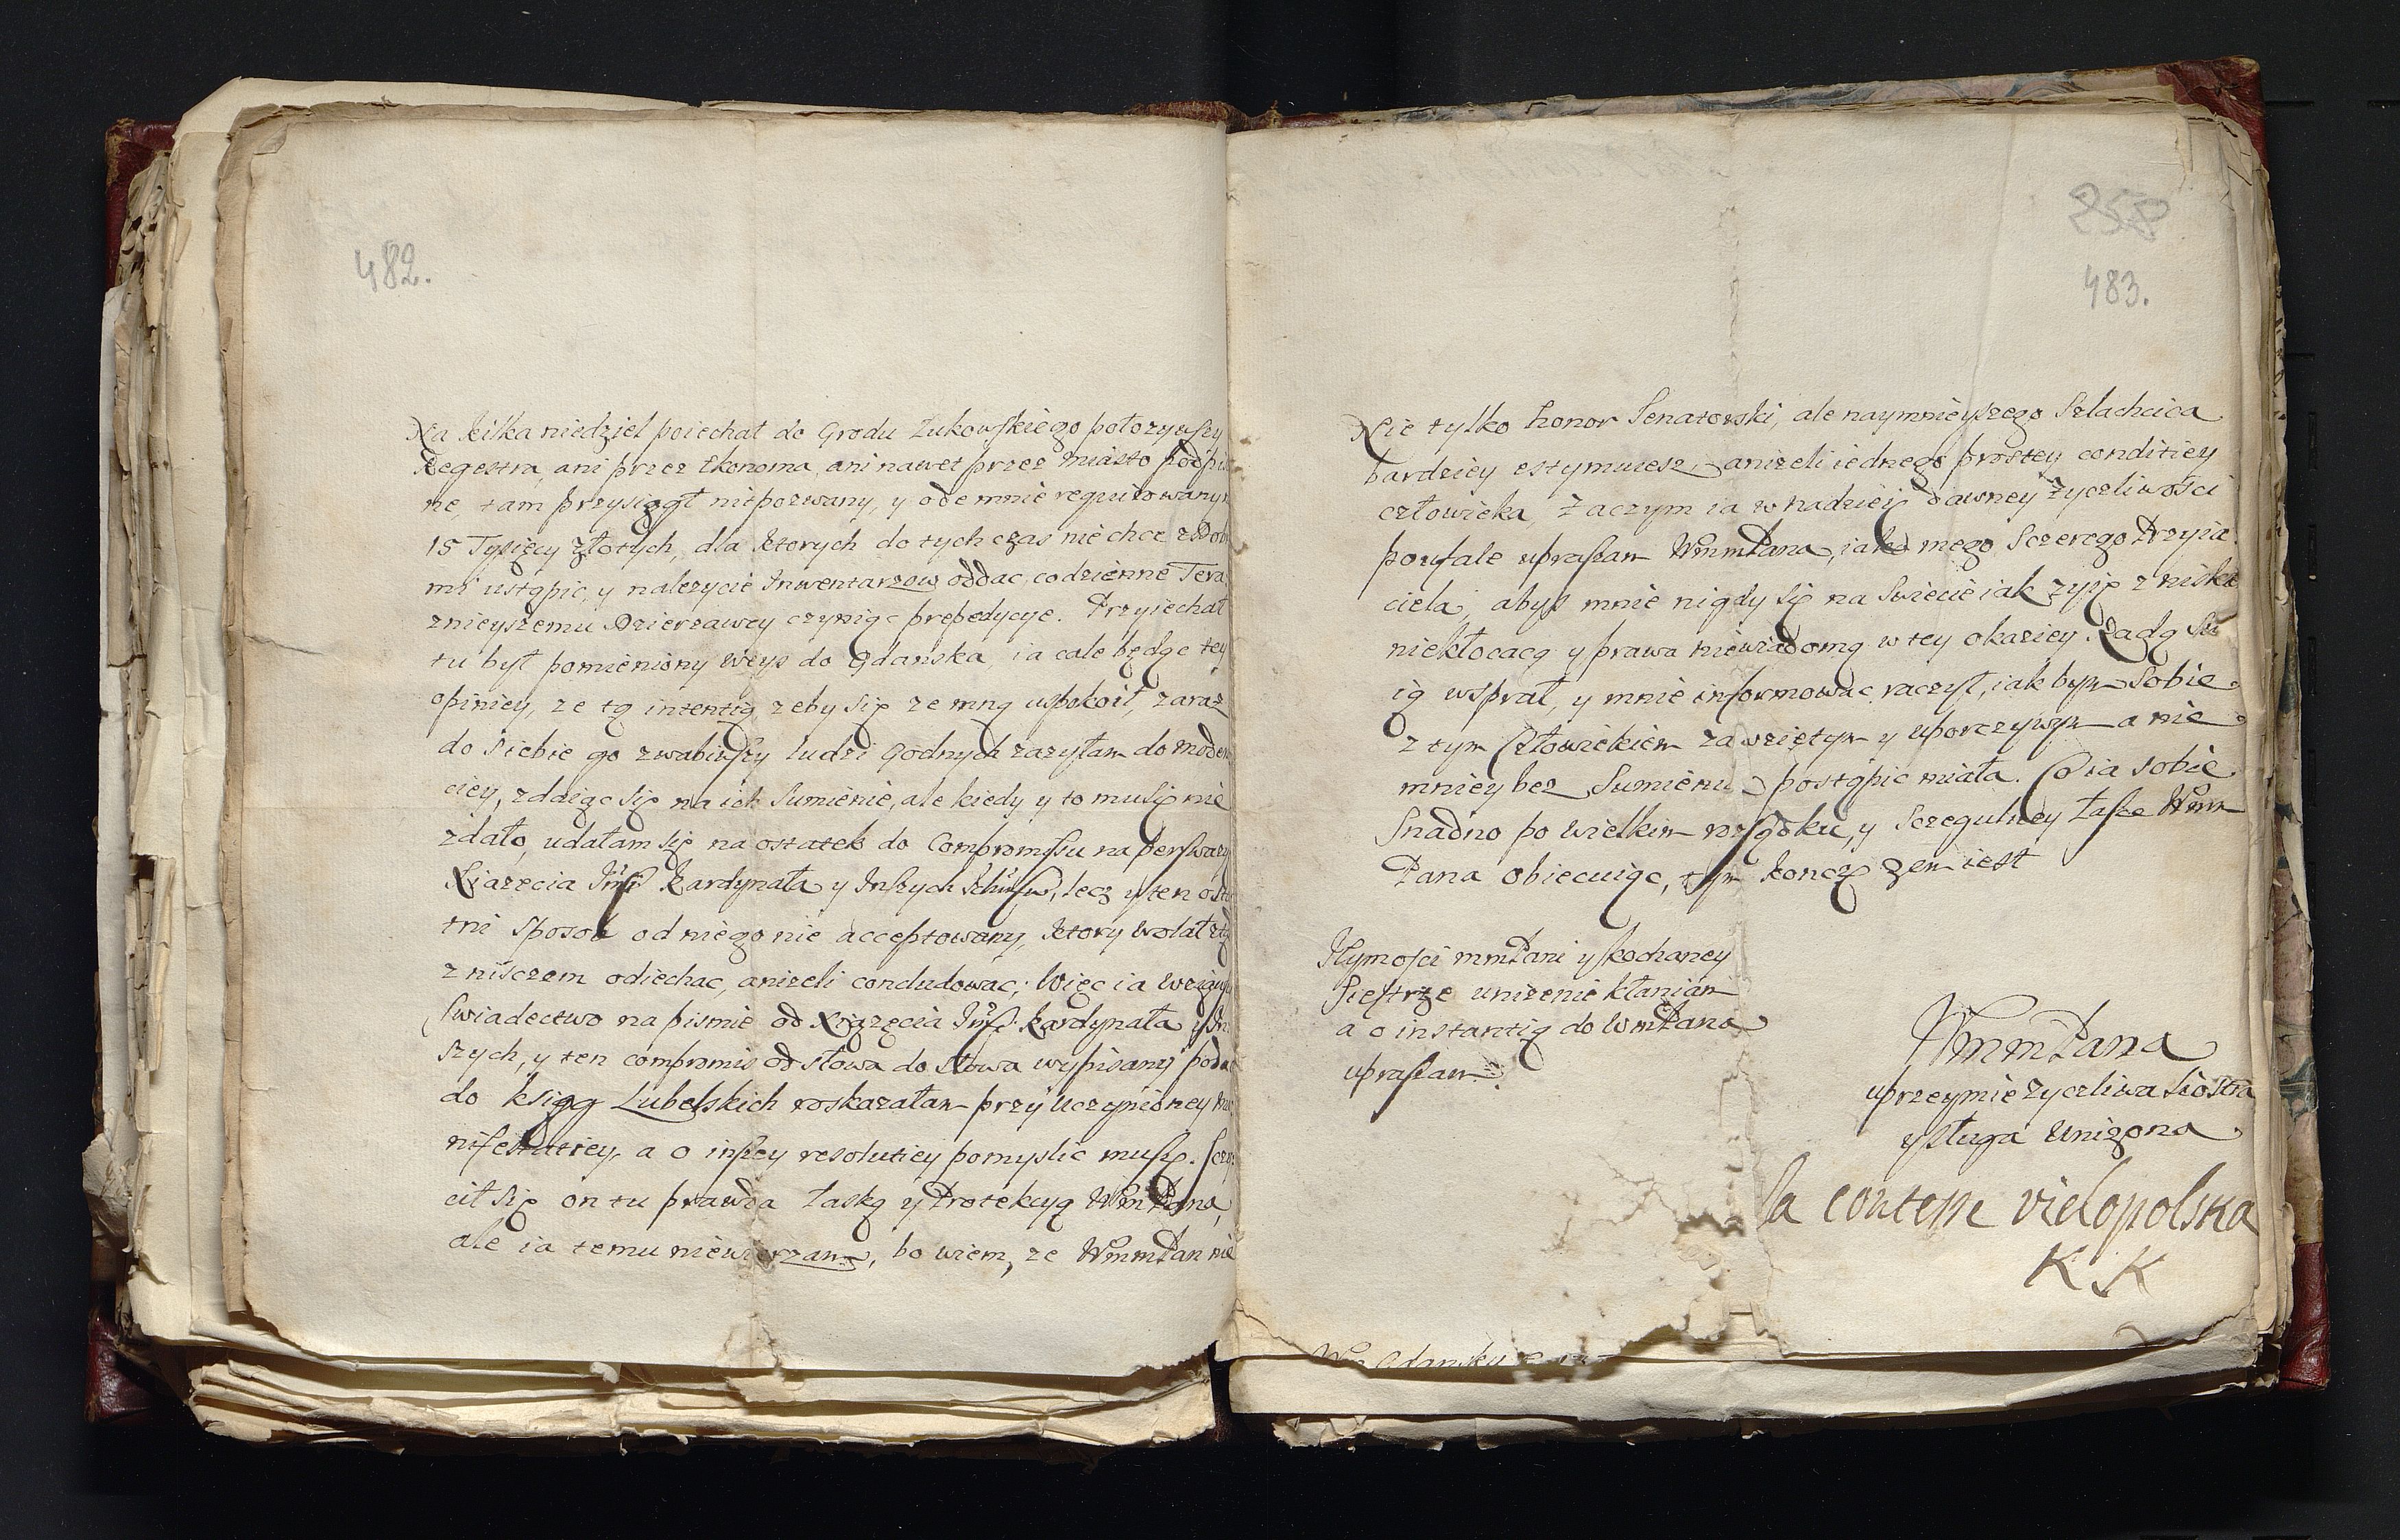 482.
Na kilka niedziel poiechał do Grodu Łukowskiego położywszy
Regestra, ani przez Ekonoma, ani nawet przez Miasto podpisa
ne, tam przysiągł niepozwany, y odemnie requirowany
15 Tysięcy złotych, dla ktorych do tych czas nie chce z Dobr
mi ustąpic, y należycie Inwentarzow oddac, codzienne Tera
znieyszemu Dzierzawcy czyniąc prepedycye. Przyiechał
tu był pomieniony Weys do Gdanska, ia cale będąc tey
opiniey, ze tą intentią zeby się ze mną uspokoił, zaraz
do siebie go zwabiwszy ludzi godnych zazyłam do moder
ciey, zdaiąc się na ich Sumienie, ale kiedy y to mu się nie
zdało, udałam się na ostatek do Compromissu na perswazy
Xiązęcia Jmsc Kardynała y Inszych, lecz y ten osta
tni sposob od niego nie acceptowany, ktory wolał ztąd
z nisczem odiechac, anizeli concludowac; Więc ia wziąwszy
Swiadectwo na pismie od Xiązęcia Jmsc Kardynała y In
szych, y ten compromis od słowa do słowa wypisany podac
do ksiąg Lubelskich roskazałam przy Uczynioney Ma
nifestatiey, a o inszey resolutiey pomyslic muszę. Sczy
cił się on tu prawda łaską y Protekcyą WmmPana,
ale ia temu niewierzam, bo wiem, ze WmmPan nie
258
483.
Nie tylko honor Senatorski, ale naymnieyszego Szlachcica
bardziey estymuiesz anizeli iednego prostey conditiey
człowieka, Zaczym ia w nadzieię dawney zyczliwości
poufale upraszam WmmPana, iako mego Sczerego Przyia
ciela, abys mnie nigdy się na Swiecie iak zyię z niskie
niekłocącą y prawa niewiadomą w tey okaziey Radą Sw
ią wsprał, y mnie informowac raczył, iak bym Sobie
z tym Człowiekiem zawziętym y uporczywym a nie
mniey bez Sumieniu postąpic miała. Co ia sobie
Snadno po wielkim rozsądku, y Sczegulney łasce Wmm
Pana obiecuiąc, tym koncze zem iest
JEymosci mmPani y kochaney
Siestrze unizenie kłaniam
a o instantią do WmPana
upraszam.
WmmPana
uprzeymie zyczliwa Siostra
y sługa Unizona
la contesse vielopolska
K K
Gdansku